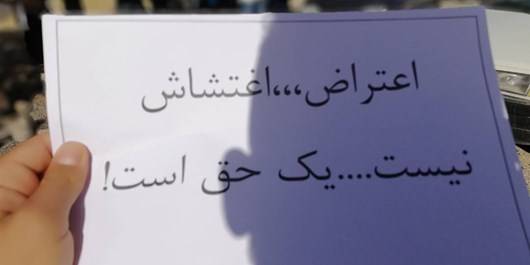 اعتراض،،،اغتشاش
نیست....یک حق است!